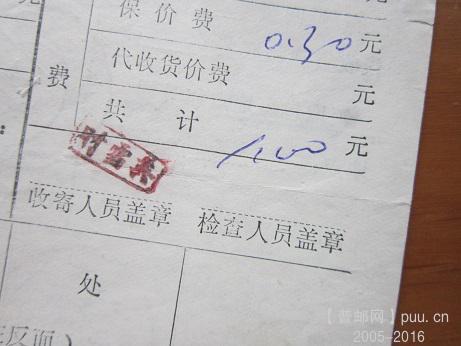 元
保价费 0.30元
代收货价费 元
费
共计 1.00元
收寄人员盖章 检查人员盖章
处
反面）
【普邮网】puu.cn
2005-2016